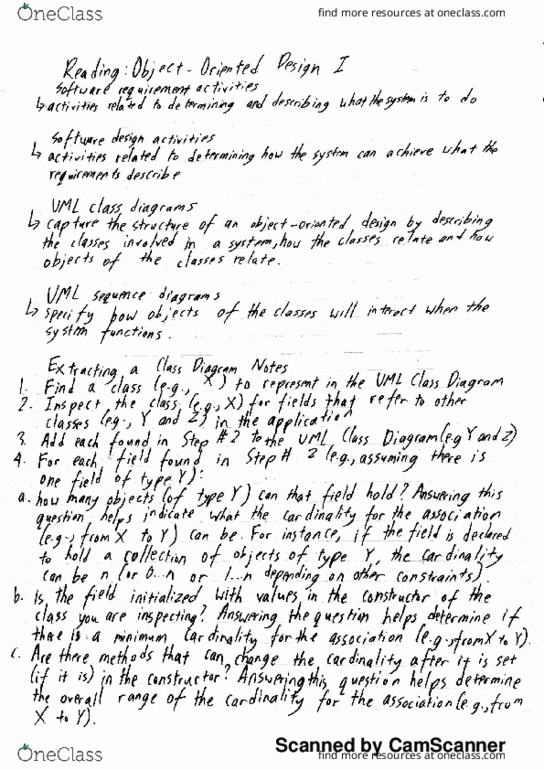 OneClass
find more resources at oneclass.com
Reading: Object-Oriented Design I
Software requirement activities
↳ activities related to determining and describing what the system is to do
Software design activities
↳ activities related to determining how the system can achieve what the
requirements describe
UML class diagrams
↳ capture the structure of an object-oriented design by describing
the classes involved in a system, how the classes relate and how
objects of the classes relate.
UML sequence diagrams
↳ specify how objects of the classes will interact when the
system functions.
Extracting a Class Diagram Notes
1. Find a class (e.g., X) to represent in the UML Class Diagram
2. Inspect the class (e.g., X) for fields that refer to other
classes (eg., Y and Z) in the application
3. Add each found in Step #2 to the UML Class Diagram (e.g Y and Z)
4. For each field found in Step # 2 (e.g., assuming there is
one field of type Y):
a. how many objects (of type Y) can that field hold? Answering this
question helps indicate what the cardinality for the association
(e.g., from X to Y) can be. For instance, if the field is declared
to hold a collection of objects of type Y, the cardinality
can be n (or 0...n or 1...n depending on other constraints).
b. Is the field initialized with values in the constructor of the
class you are inspecting? Answering the question helps determine if
there is a minimum cardinality for the association (e.g., from X to Y).
c. Are there methods that can change the cardinality after it is set
(if it is) in the constructor? Answering this question helps determine
the overall range of the cardinality for the association (e.g., from
X to Y).
Scanned by CamScanner
OneClass
find more resources at oneclass.com